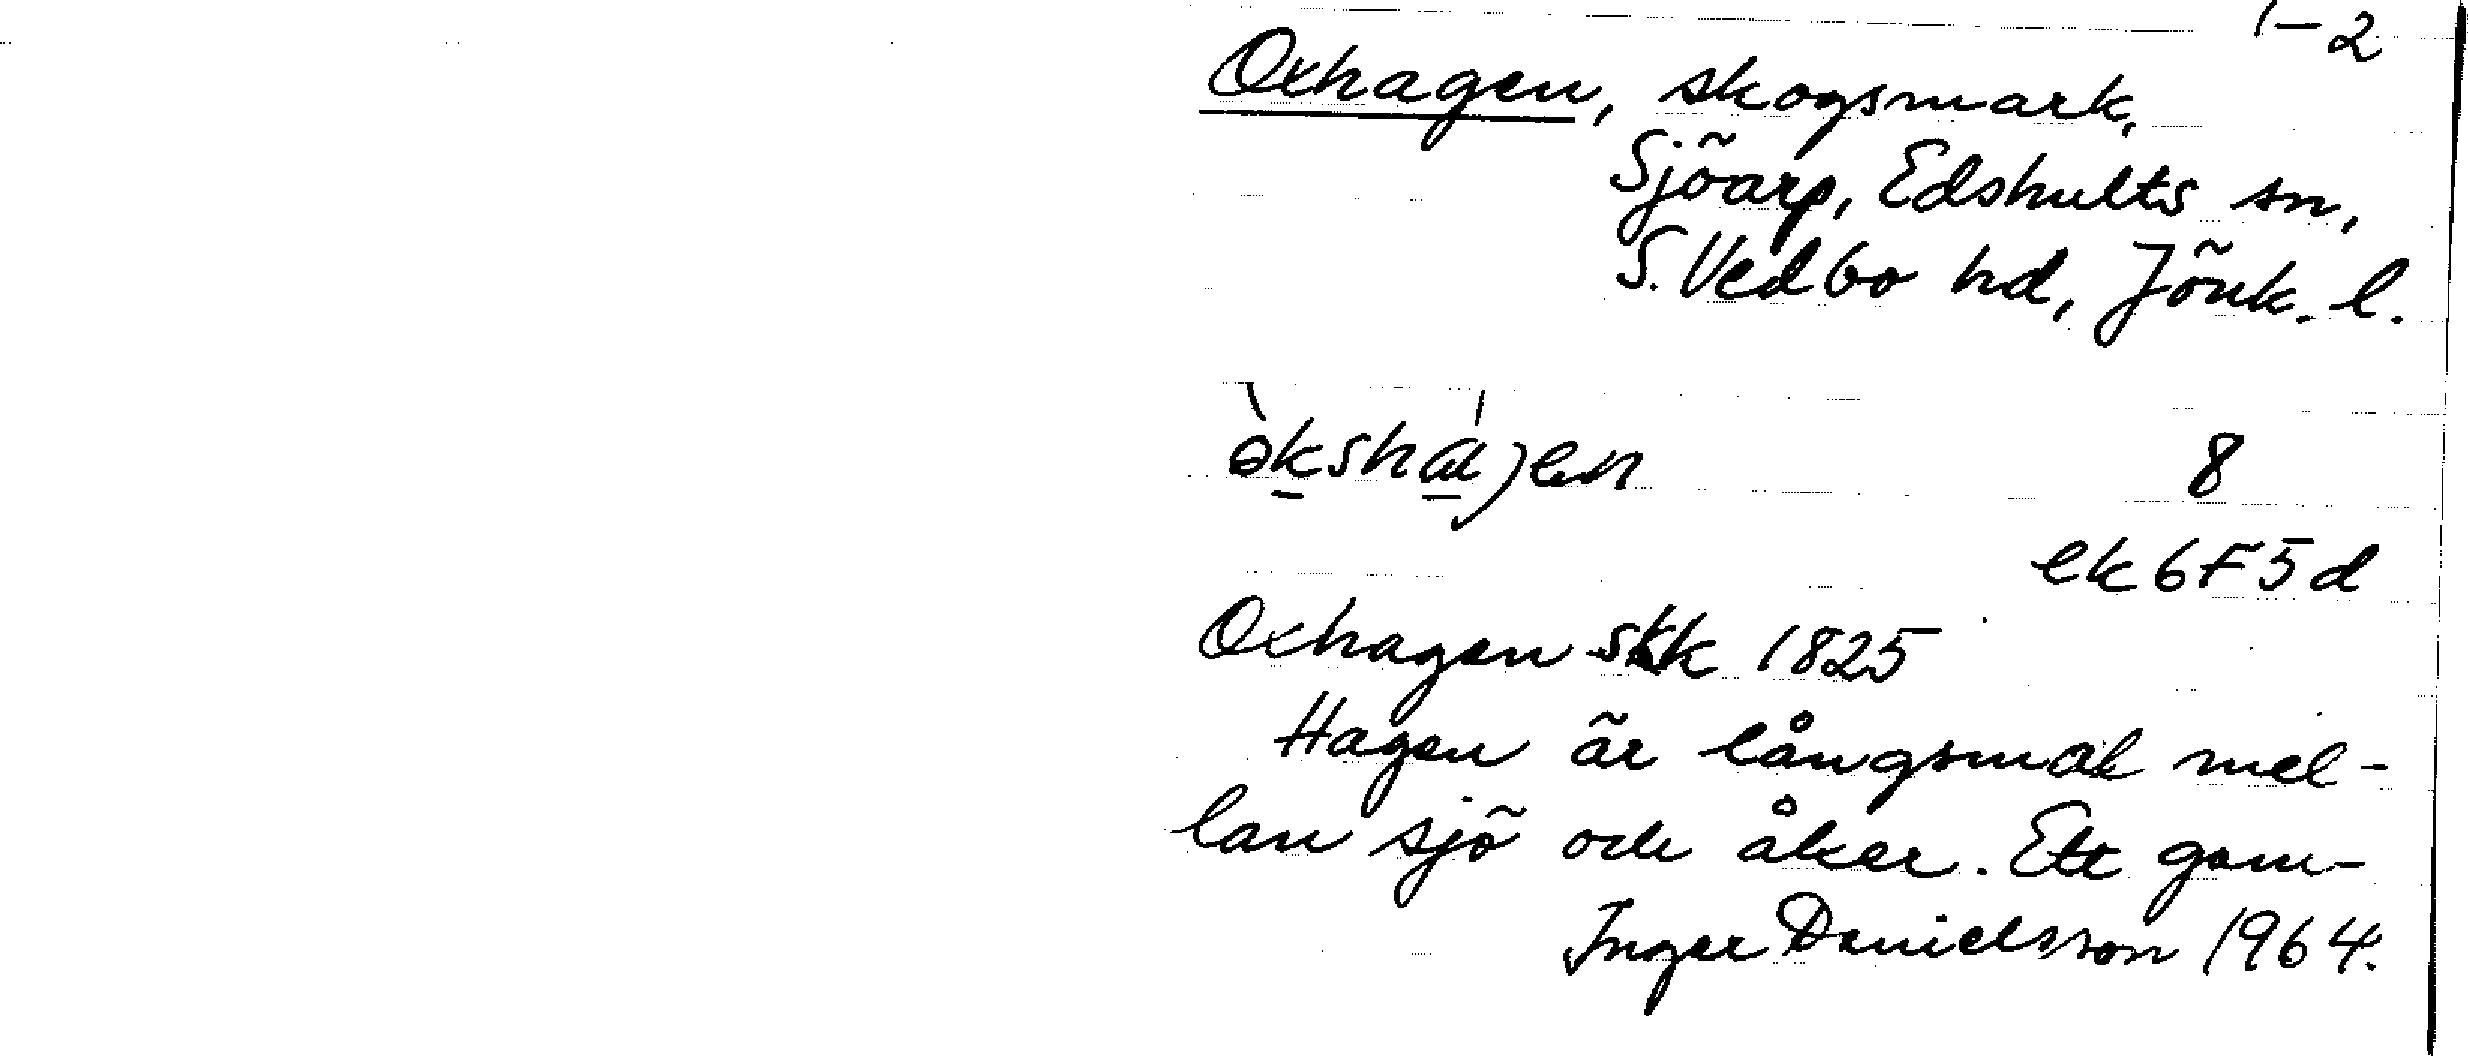 1-2
Oxhagen, skogsmark,
Sjöarp, Edshults sn,
S. Vedbo hd, Jönk. l.
8
ek 6F5d
Oxhagen skk 1825
Hagen är långsmal mel-
lan sjö och åker. Ett gam-
Inger Danielsson 1964.